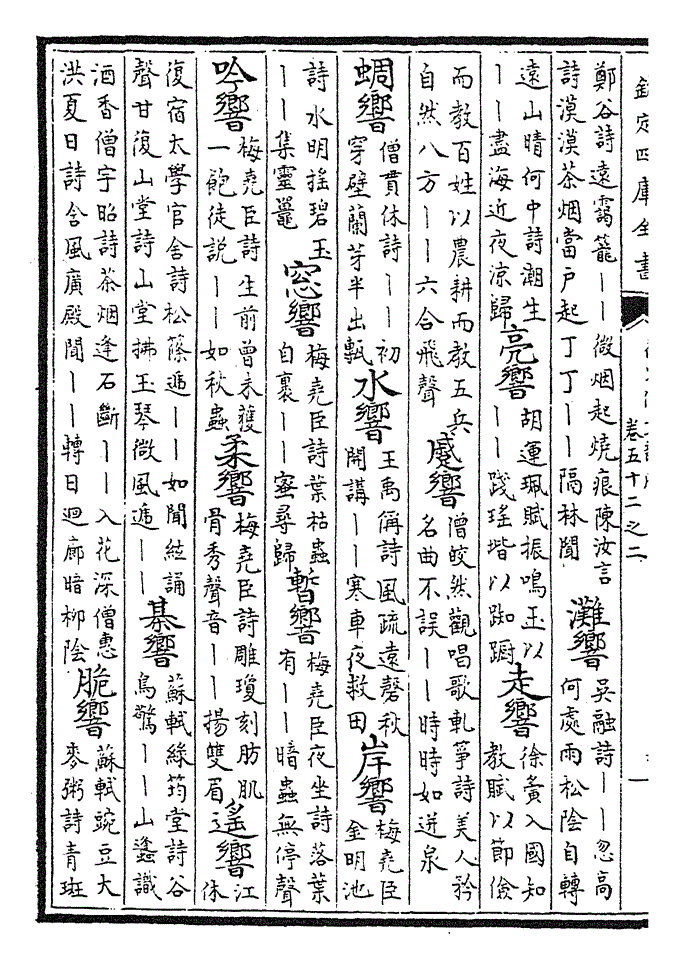 欽定四庫全書
卷五十二之二
鄭谷詩遠靄籠——微烟起燒痕陳汝言
詩漠漠茶烟當户起丁丁——隔林聞
灘響
吳融詩——忽高
何處雨松陰自轉
遠山晴何中詩潮生
——盡海近夜涼歸
亮響
胡運珮賦振鳴玉以
——踐瑤堦以踟蹰
走響
徐夤入國知
教賦以節儉
而教百姓以農耕而教五兵
自然八方——六合飛聲
蹙響
僧皎然觀唱歌軋箏詩美人矜
名曲不誤——時時如迸泉
蜩響
僧貫休詩——初
穿壁蘭芽半出甎
水響
王禹偁詩風疏遠磬秋
開講——寒車夜救田
岸響
梅堯臣
金明池
詩水明搖碧玉
——集靈鼉
窓響
梅堯臣詩葉枯蟲
自裹——蜜尋歸
暫響
梅堯臣夜坐詩落葉
有——暗蟲無停聲
吟響
梅堯臣詩生前曾未獲
一飽徒説——如秋蟲
柔響
梅堯臣詩雕瓊刻肪肌
骨秀聲音——揚雙眉
遙響
江
休
復宿太學官舍詩松篠遞——如聞絃誦
聲甘復山堂詩山堂拂玉琴微風遞——
棊響
蘇軾緑筠堂詩谷
鳥驚——山蠭識
酒香僧宇昭詩茶烟逢石斷——入花深僧惠
洪夏日詩含風廣殿聞——轉日迴廊暗柳陰
脆響
蘇軾豌豆大
麥粥詩青斑